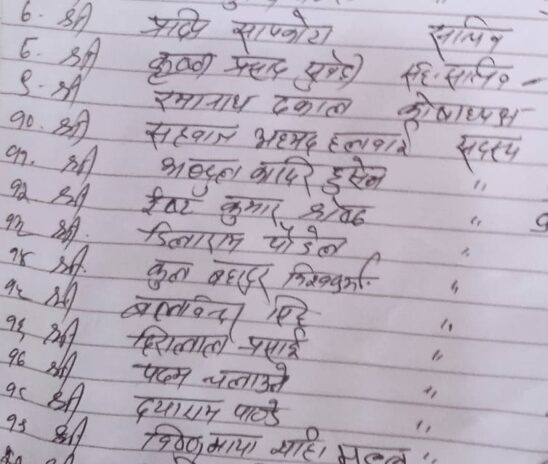 ७. श्री प्रदिप सापकोटा सचिव
८. श्री कृष्ण प्रसाद सुवेदी सह-सचिव -
९. श्री रमानाथ ढकाल कोषाध्यक्ष
१०. श्री अहमद हलवाई सदस्य
११. श्री अब्दुल कादिर हुसेन "
१२. श्री ईश्वर कुमार श्रेष्ठ "
१३. श्री डिलाराम पौडेल "
१४. श्री कुल बहादुर "
१५. श्री "
१६. श्री हिरालाल प्रसाई "
१७. श्री पदम चलाउने "
१८. श्री दयाराम पाण्डे "
१९. श्री विष्णुमाया शाही मल्ल "